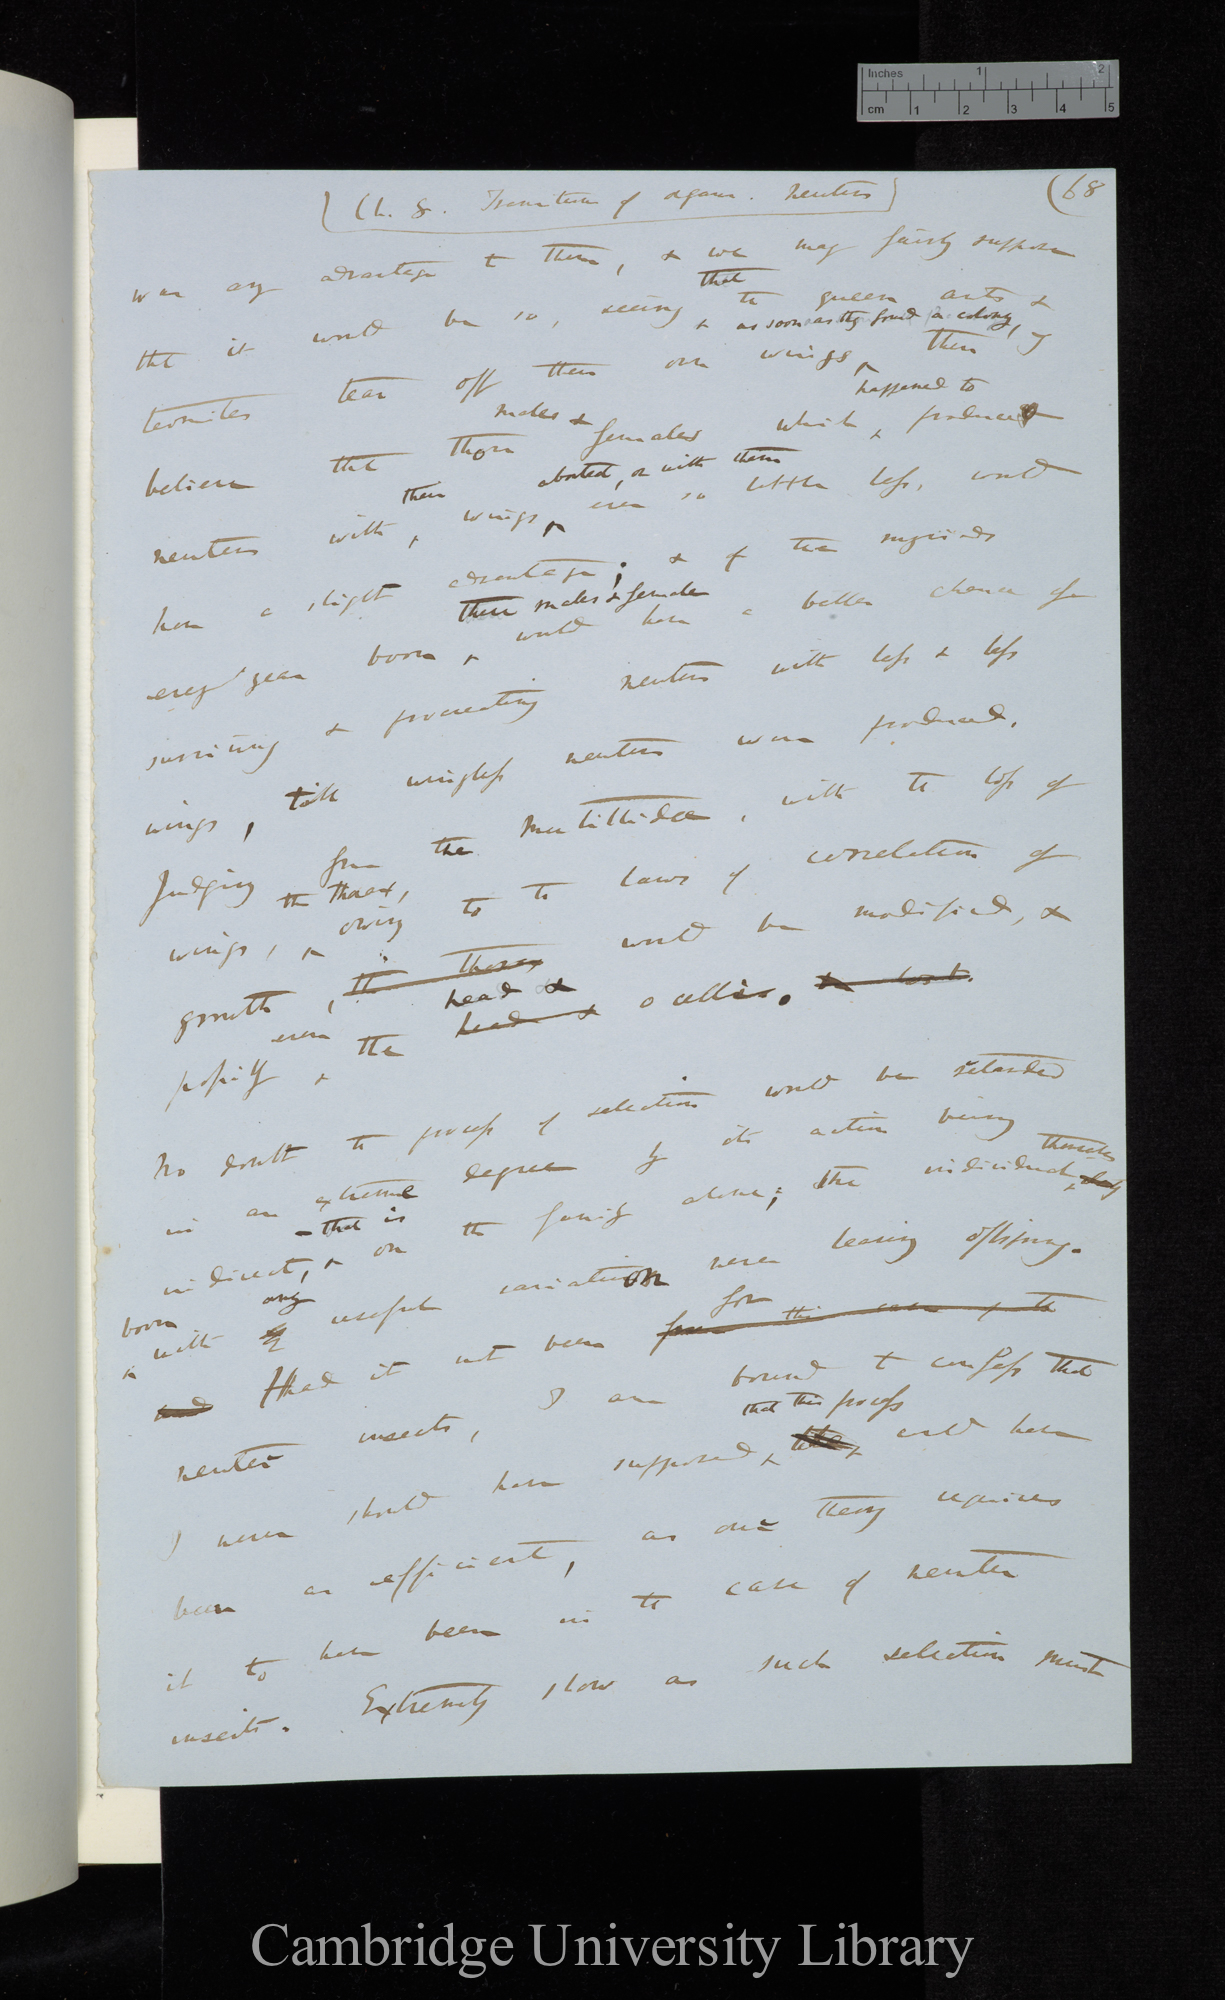 Inches 1 2
cm 1 2 3 4 5
(Ch. 8. Transition of organs. Neuters)
(68
was any advantage to them, & we may fairly suppose
that it would be so, seeing that the queen ants &
& as soon as they found a colony,
termites tear off their own wings, then
happened to
believe that those males & females which produced
neuters with their wings aborted, or with them ever so little less, would
have a slight advantage; & of the myriads
every year born, these males & females would have a better chance of
surviving & procreating neuters with less & less
wings, till wingless neuters were produced.
Judging from the Mutillidæ, with the loss of
wings, the thorax, owing to the laws of correlation of
growth, the thorax would be modified, &
possibly even the head & head & ocelli. be lost.
No doubt the process of selection would be retarded
in an extreme degree by its action being
indirect, – that is on the family alone; the individuals themselves
born with any useful variation never leaving offspring.
and Had it not been for from this case of the
neuter insects, I am bound to confess that
I never should have supposed that this process could have
been as efficient, as our theory requires
it to have been in the case of neuter
insects. Extremely slow as such selection must
Cambridge University Library